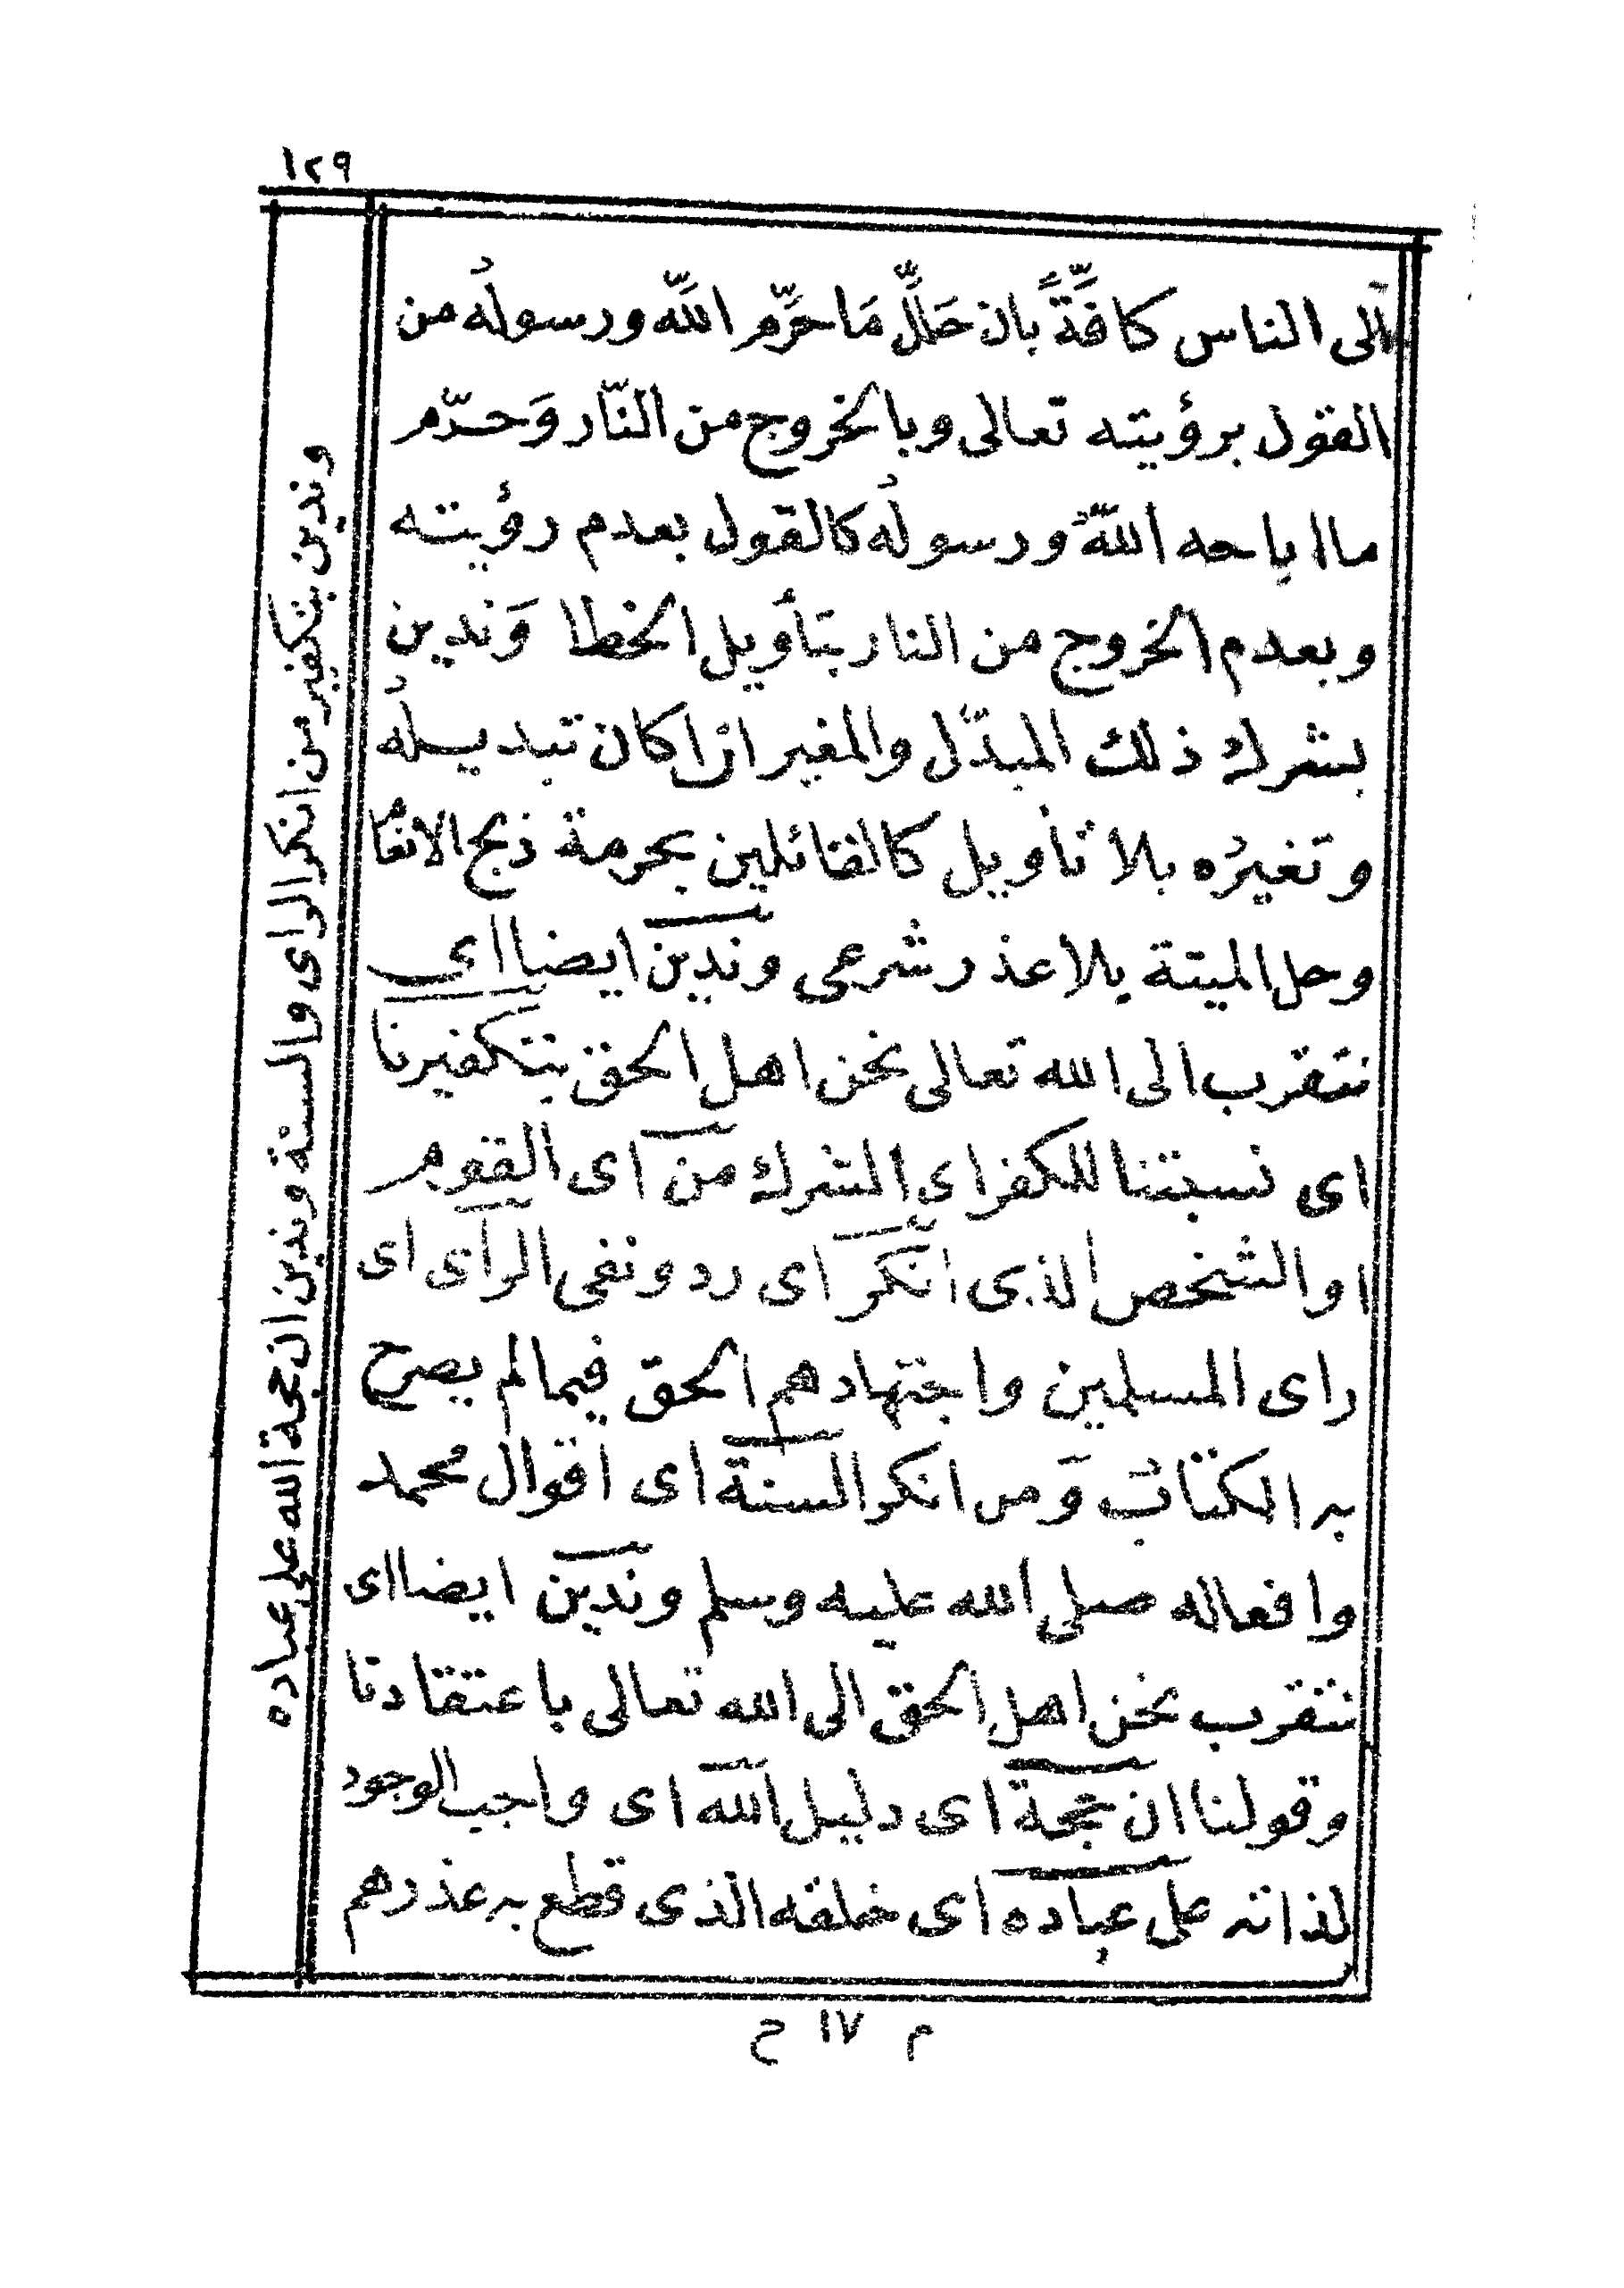 ١٢٩
الى الناس كافَّةً بان حَلَّلَ مَا حَرَّم اللّه ورسولُه من
القول برؤيته تعالى وبالخروج من النّار وَحرّم
ما اباحه اللّهُ ورسولُه كالقول بعدم رؤيته
وبعدم الخروج من النار بتأويل الخطا وَندين
بشرك ذلك المبدّل والمغير اذا كان تبديلُه
وتغيرُه بلا تأويل كالقائلين بحرمة ذبح الانعام
وحل الميتة بلا عذر شرعى وندين ايضا اى
نتقرب الى الله تعالى نحن اهل الحق بتكفيرنا
اى نسبتنا للكفر اى الشرك من اى القوم
او الشخص الذى انكر اى رد ونفى الراى اى
راى المسلمين واجتهادهم الحق فيما لم يصرح
به الكتاب وَمن انكر السنة اى اقوال محمد
وافعاله صلى الله عليه وسلم وندين ايضا اى
نتقرب نحن اهل الحق الى الله تعالى باعتقادنا
وقولنا ان حجة اى دليل الله اى واجب الوجود
لذاته على عباده اى خلقه الذى قطع به عذرهم
وندين بتكفير من انكر الراى والسنة وندين ان حجة الله على عباده
م ١٧ ح